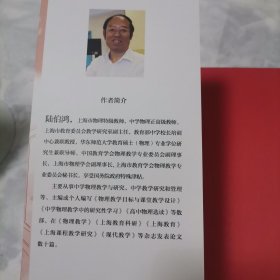 作者简介
陆伯鸿，上海市物理特级教师，中学物理正高级教师，
上海市教育委员会教学研究室副主任，教育部中学校长培训
中心兼职教授，华东师范大学教育硕士（物理）专业学位研
究生兼职导师，中国教育学会物理教学专业委员会副理事
长，上海市物理学会副理事长，上海市教育学会物理教学专
业委员会秘书长，享受国务院政府特殊津贴。
主要从事中学物理教学与研究、中学教学研究和管理
等。主编或个人编写《物理教学目标与课堂教学设计》
《中学物理教学中的研究性学习》《高中物理选读》等数
部，在《物理教学》《上海教育科研》《上海教育》
《上海课程教学研究》《现代教学》等杂志发表论文
数十篇。